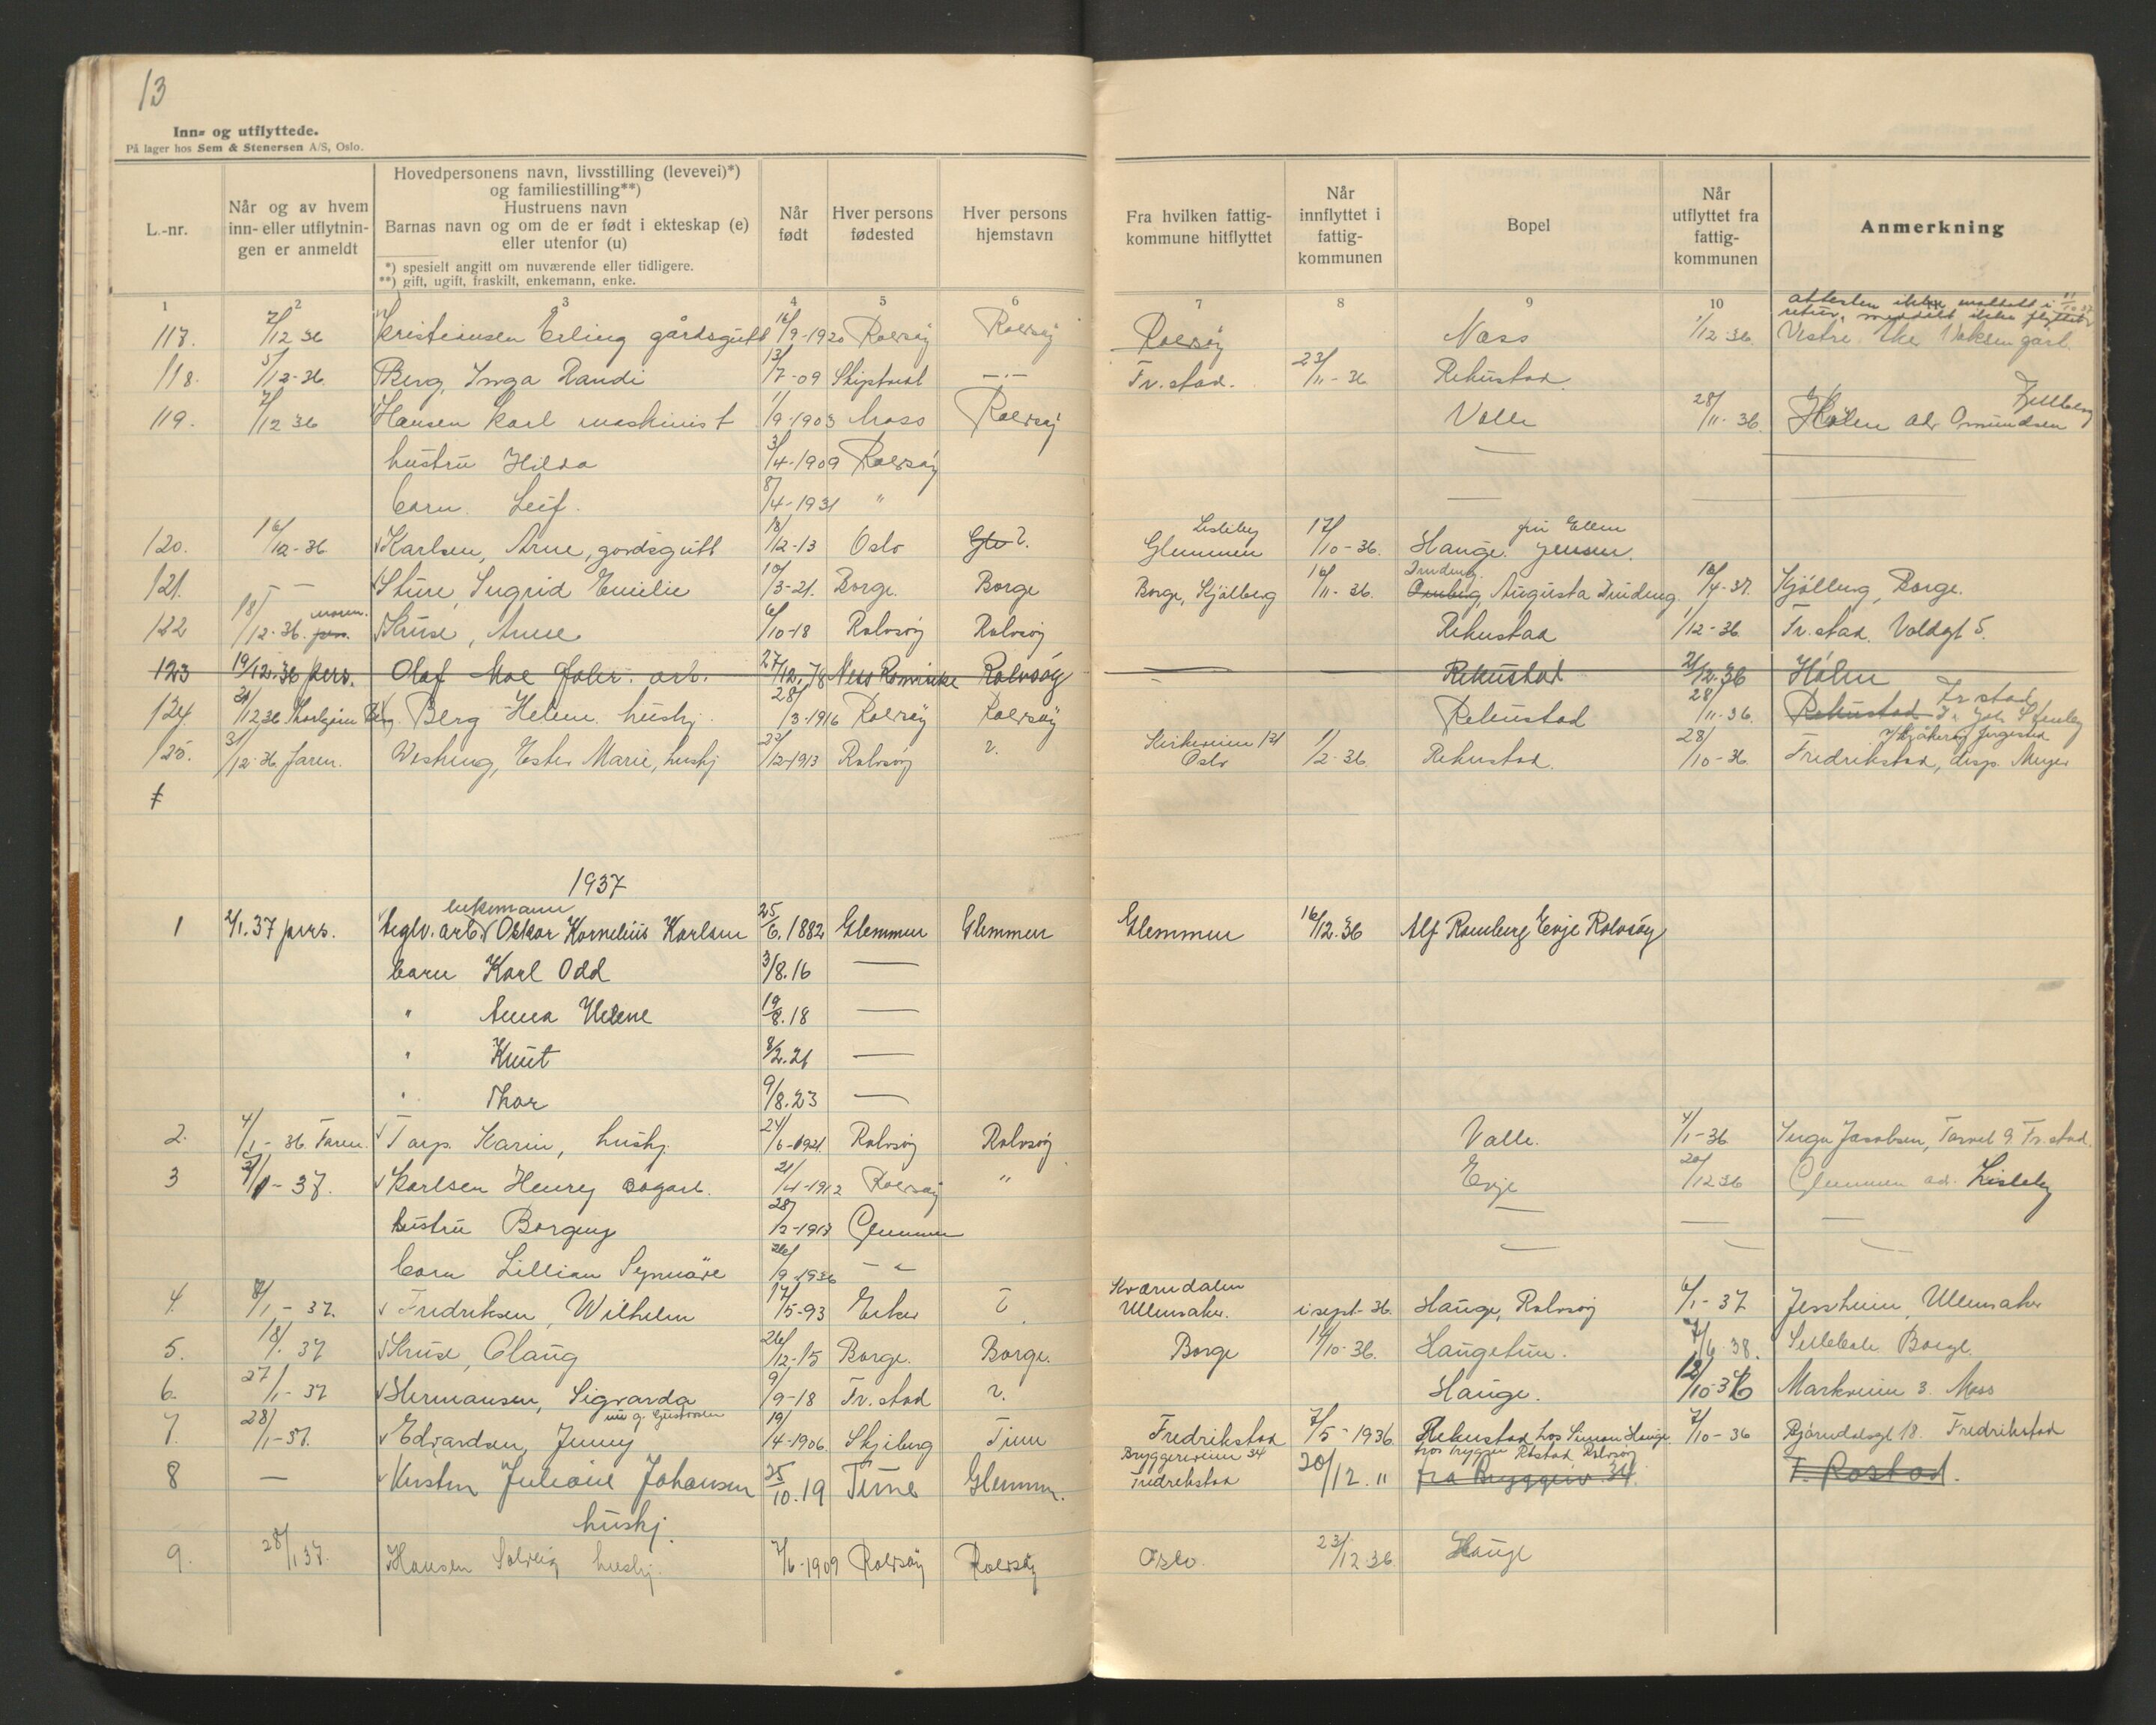 13
Inn- og utflyttede.
På lager hos Sem & Stenersen A/S, Oslo.
L.-nr.
Når og av hvem inn- eller utflytningen er anmeldt
Hovedpersonens navn, livsstilling (levevei)*)
og familiestilling**)
Hustruens navn
Barnas navn og om de er født i ekteskap (e)
eller utenfor (u)
*) spesielt angitt om nuværende eller tidligere.
**) gift, ugift, fraskilt, enkemann, enke.
Når født
Hver persons fødested
Hver persons hjemstavn
Fra hvilken fattigkommune hitflyttet
Når innflyttet i fattigkommunen
Bopel
Når utflyttet fra fattigkommunen
Anmerkning
1 2 3 4 5 6 7 8 9 10
attesten ikke mottatt i 11/10 37
retur, meddelt ikke flyttet
117. 2/12 36 Kristiansen Erling gårdsgutt 16/9-1920 Rolvsøy Rolvsøy Rolvsøy Næss 1/12 36. Vestre
118. 5/12-36. Berg, Inga Randi 13/7-09 Skiptvet —·— Fr.stad. 23/11-36 Rekustad.
119. 7/12 36 Hansen Karl maskinist 1/9-1903 Moss Rolvsøy Valle 28/11-36. Hölen adr Omundsen
hustru Hilda 3/4-1909 Rolvsøy —
barn. Leif. 8/4-1931 " — — —
Lisleby fru Ellen
120. 16/12-36 Karlsen, Arne, gårdsgutt 18/12-13 Oslo Gle ?. Glemmen 17/10-36. Hauge. Jensen.
121. — — Sture, Ingrid Emilie 10/3-21. Borge. Borge Borge, Kjölberg 16/11-36. Augusta 16/4-37. Kjölberg, Borge.
122 18/12-36. pers. Kruse, Anne 6/10-18 Rolvsøy Rolvsøy Rekustad 1/12-36 Fr.stad. Voldgt 5.
123 19/12.36 pers. Olaf Moe fabr. arb. 27/12.78 Nes Romerike Rolvsøy — Rekustad 21/12.36 Hölen
124. 21/12 36 Berg Helene hushj. 28/3-1916 Rolvsøy Rolvsøy Rekustad 28/11-36. Rekustad Fr stad
125. 31/12-36 faren. Westeng, Ester Marie, hushj 22/12-1913 Rolvsøy ?. Kirkeveien 131 Oslo 1/2-36 Rekustad. 28/10-36 Fredrikstad, disp. Meyer
1937
enkemann
1 2/1.37 pers. teglv.arb. Oskar Kornelius Karlsen 25/6.1882 Glemmen Glemmen Glemmen 16/12.36 Alf Ramberg Evje Rolvsøy
barn Karl Odd 3/8.16 —
" Anna Helene 19/8.18 —
" Knut 8/2.21 —
" Thor 9/8.23 —
2. 4/1-36 Faren. Tarp. Karin, hushj. 24/6-1921 Rolvsøy Rolvsøy Valle. 4/1-36 Inga Jacobsen, Torvet 9 Fr.stad.
3 2/1-37. Karlsen Henry sagarb. 21/4-1912 Rolvsøy " Evje 20/12 36 Glemmen ad. Lisleby
hustru Borgny 28/2-1913 Glemmen — — —
barn Lillian Synnöve 26/9-1936 — " — — —
4. 8/1-37. Fredriksen, Wilhelm 17/5-93 Eiker ? Kværndalen Ullensaker. i sept-36. Hauge, Rolvsøy 6/1-37 Jessheim, Ullensaker
5. 18/1. 37 Kruse, Olaug 26/12-15 Borge. Borge. Borge 14/10-36. Haugetun. 7/6-38. Borge.
6. 27/1-37 Hermansen, Sigvarda 9/9-18 Fr.stad ?. Hauge. 12/10-36 Markveien 3. Moss
nu g. Gustavsen
7. 28/1-37. Edvardsen, Jenny 19/4-1906. Skjeberg Tune Fredrikstad 7/5-1936 Rekustad hos Simon Hauge 7/10-36 Bjørndalsgt 18. Fredrikstad
8 — Kirsten Juliane Johansen 25/10.19 Tune Glemmen. Bryggeriveien 34 Fredrikstad 20/12." Rostad, Rolvsøy fra Bryggeriv 34. F. Rostad.
hushj.
9. 28/1 37. Hansen Solveig hushj. 7/6-1909 Rolvsøy Rolvsøy Oslo. 23/12 36 Hauge